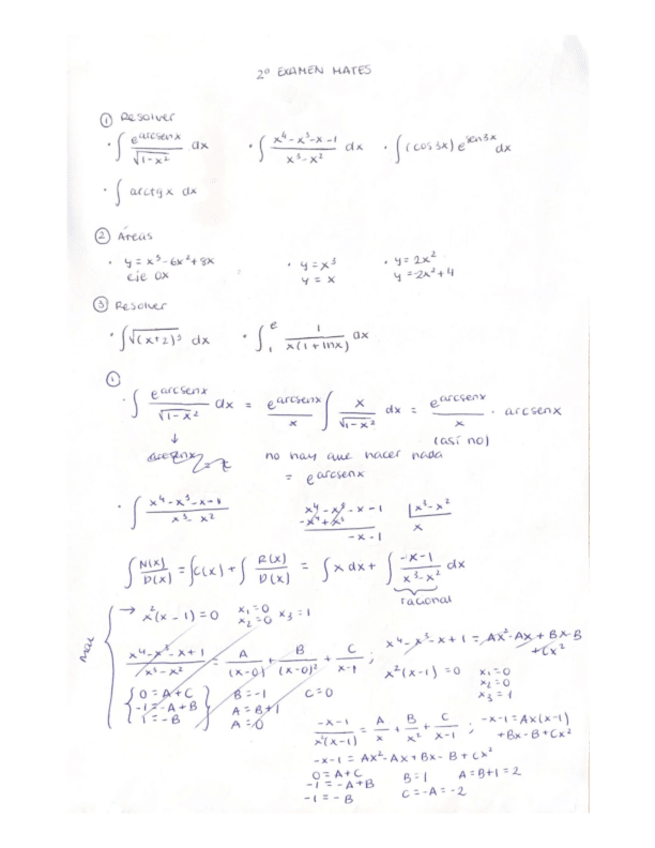 2º EXAMEN MATES
① Resolver
· ∫ e^arcsenx / √(1-x²) dx · ∫ (x⁴-x³-x-1) / (x³-x²) dx · ∫ (cos3x) e^sen3x dx
· ∫ arctgx dx
② Áreas
· y = x³-6x²+8x · y = x³ · y = 2x²
eje OX y = x y = -2x²+4
③ Resolver
· ∫ √(x+2)³ dx · ∫₁^e 1 / (x(1+lnx)) dx
①
· ∫ e^arcsenx / √(1-x²) dx = e^arcsenx / x ∫ x / √(1-x²) dx = e^arcsenx / x · arcsenx
↓ (así no)
no hay que hacer nada
= e^arcsenx
· ∫ (x⁴-x³-x-1) / (x³-x²) x⁴-x³-x-1 |x³-x²
-x⁴+x³ x
-x-1
∫ N(x)/D(x) = ∫C(x) + ∫ R(x)/D(x) = ∫ x dx + ∫ (-x-1) / (x³-x²) dx
racional
Mal
→ x²(x-1)=0 x₁=0 x₂=0 x₃=1
(x⁴-x³-x+1) / (x³-x²) = A/(x-0) + B/(x-0)² + C/(x-1) ; x⁴-x³-x+1 = Ax²-Ax+Bx-B
+Cx²
x²(x-1)=0 x₁=0
x₂=0
x₃=1
0=A+C B=-1 C=0
-1=-A+B A=B+1
1=-B A=0
(-x-1) / (x²(x-1)) = A/x + B/x² + C/(x-1) ; -x-1=Ax(x-1)
+Bx-B+Cx²
-x-1 = Ax²-Ax+Bx-B+Cx²
0=A+C B=1 A=B+1=2
-1=-A+B C=-A=-2
-1=-B